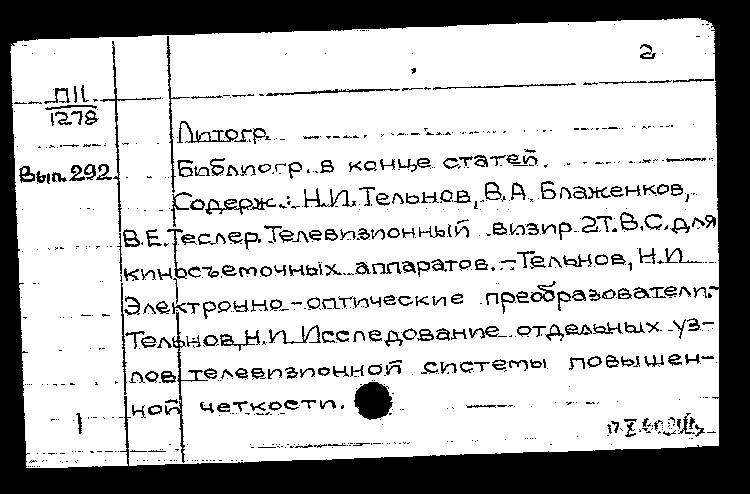 2
П11
1278
Литогр.
Вып. 292. Библиогр. в конце статей.
Содерж.: Н.И. Тельнов, В.А. Блаженков,
В.Е. Теслер. Телевизионный визир 2Т.В.С. для
киносъемочных аппаратов. – Тельнов, Н.И.
Электронно-оптические преобразователи. –
Тельнов, Н.И. Исследование отдельных уз-
лов телевизионной системы повышен-
ной четкости.
1